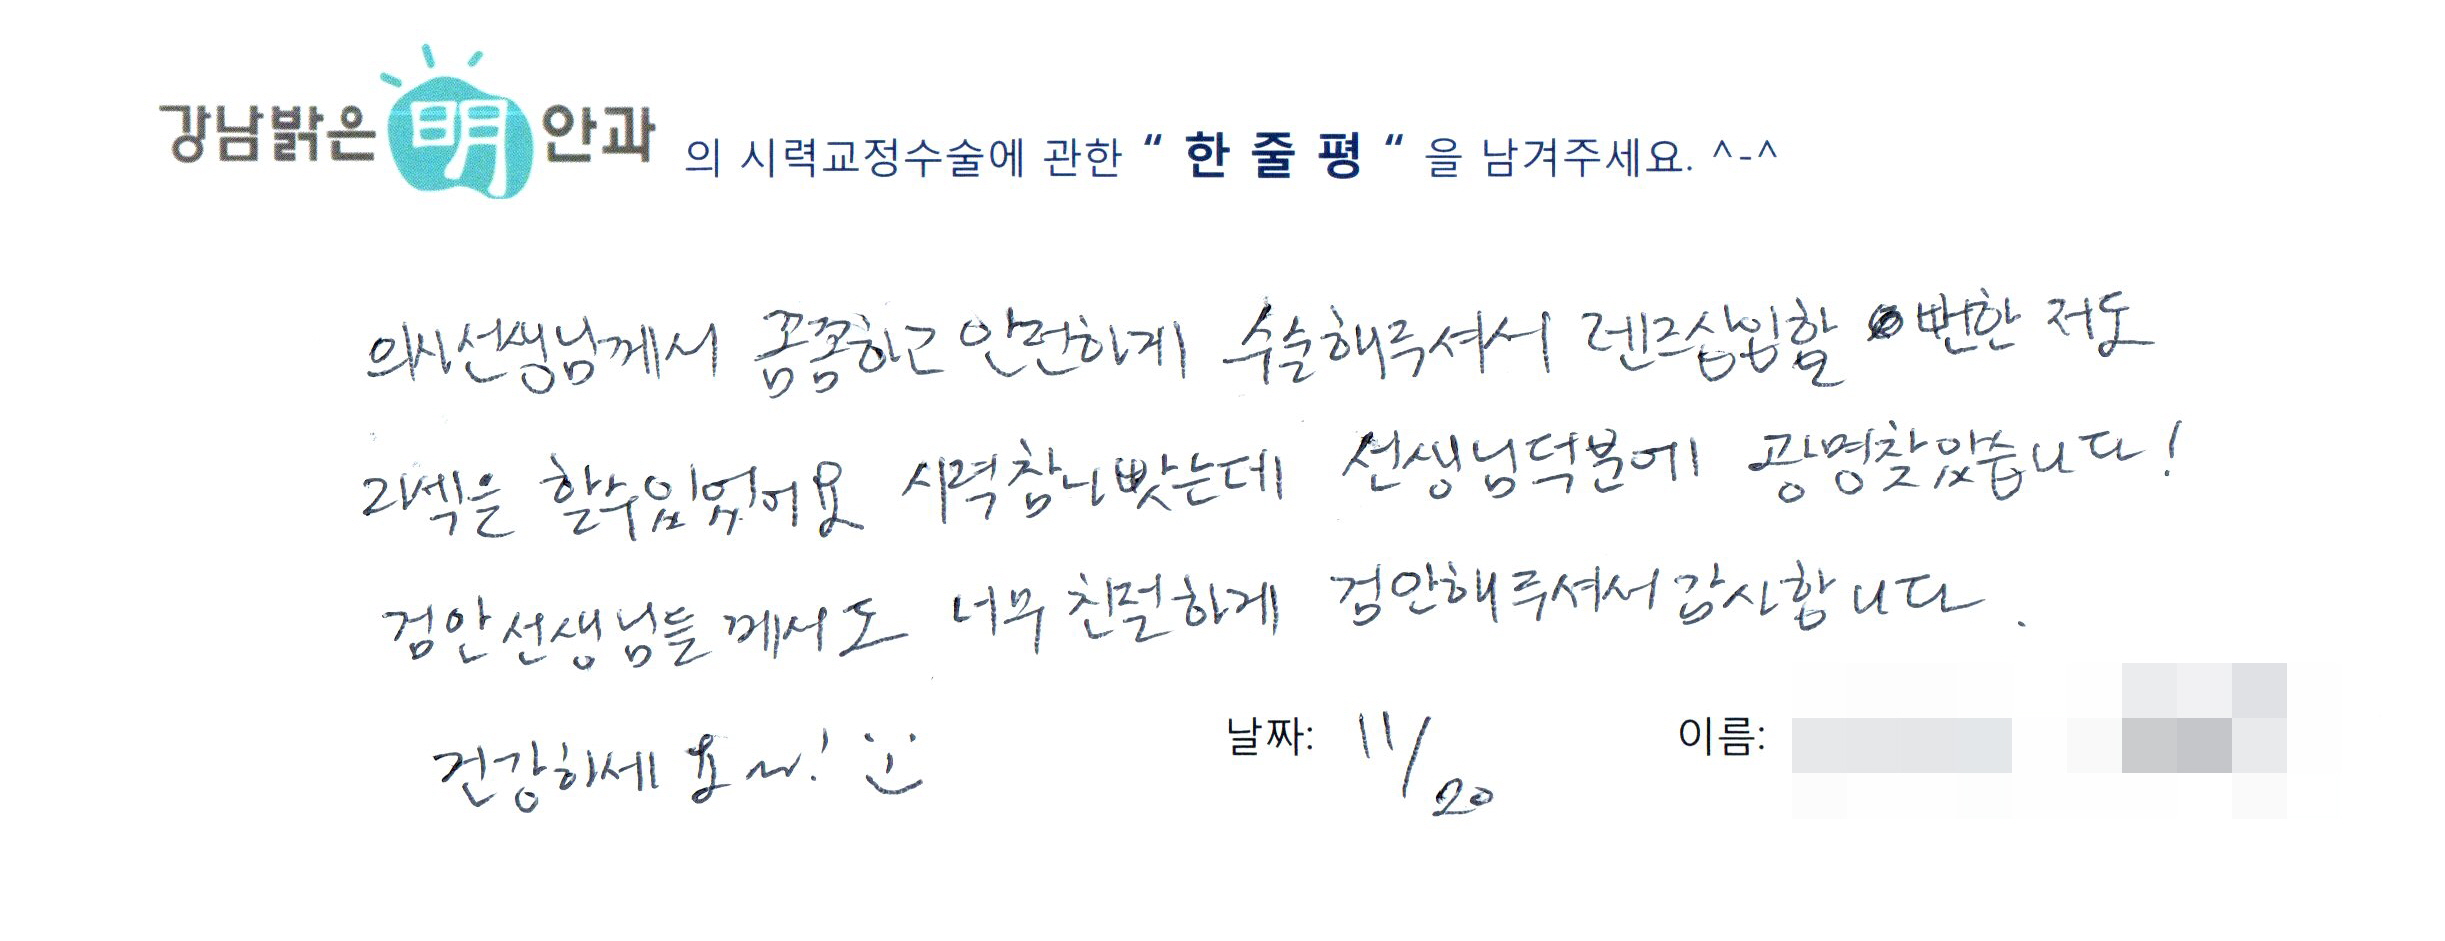 강남밝은明안과 의 시력교정수술에 관한 “ 한 줄 평 “ 을 남겨주세요. ^-^
의사선생님께서 꼼꼼하고 안전하게 수술해주셔서 렌즈삽입할 뻔한 저도
라섹을 할수있었어요 시력참나빴는데 선생님덕분에 광명찾았습니다!
검안선생님들 께서도 너무 친절하게 검안해주셔서 감사합니다.
건강하세요~! :)
날짜: 11/20 이름: